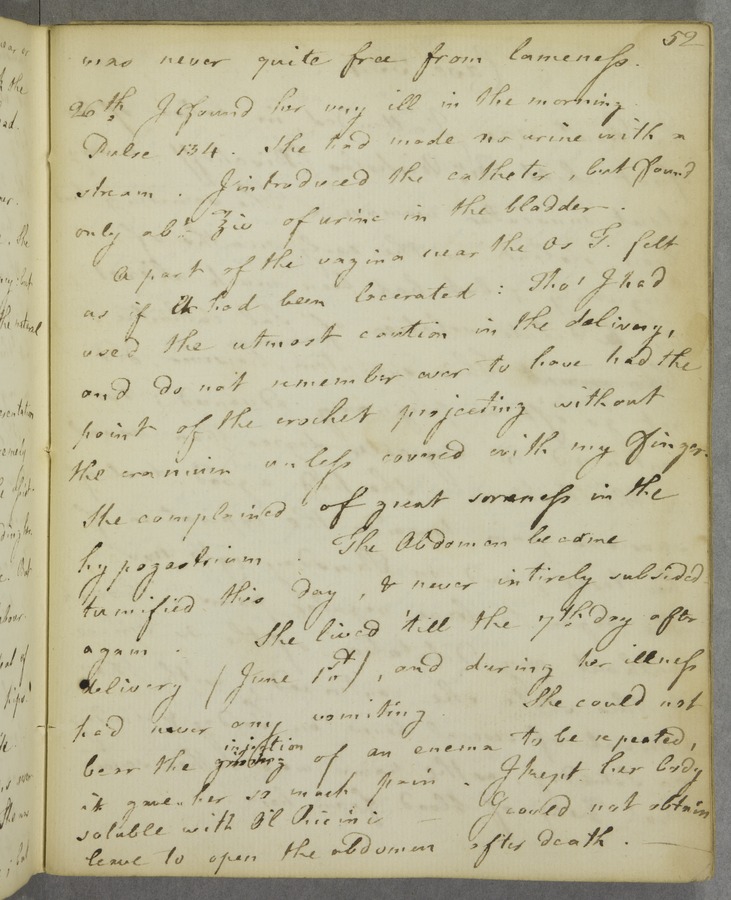 52
was never quite free from lameness.
26th. I found her very ill in the morning.
Pulse 134. She had made no urine with a
stream. I introduced the catheter, but found
only abt. ʒiv of urine in the bladder.
A part of the vagina near the Os T. felt
as if it had been lacerated: Tho' I had
used the utmost caution in the delivery,
and do not remember ever to have had the
point of the crochet projecting without
the cranium unless covered with my finger.
She complained of great soreness in the
hypogastrium. The Abdomen became
tumified this day, & never intirely subsided
again. She lived 'till the 7th day after
delivery (June 1st), and during her illness
had never any vomiting. She could not
injection
bear the of an enema to be repeated,
it gave her so much pain. I kept her body
soluble with Ol Ricini — I could not obtain
leave to open the abdomen after death. —
the
had
the natural